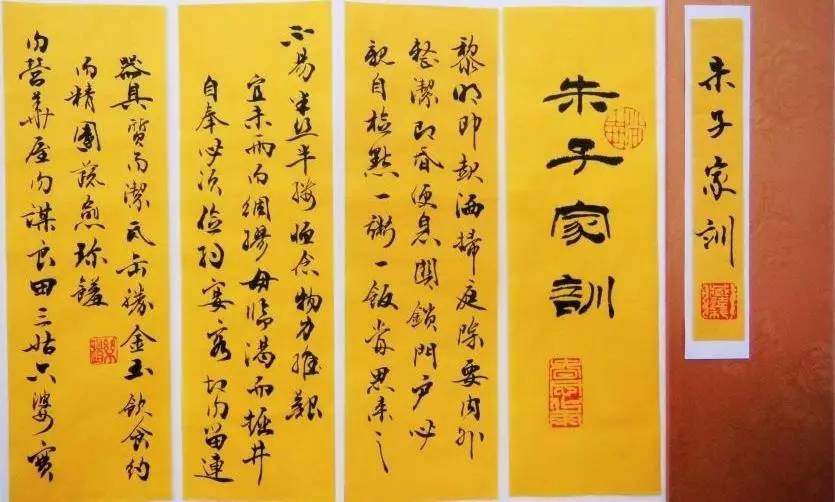 朱子家訓
朱子家訓
黎明即起洒掃庭除要内外
整潔即昏便息関鎖門户必
親自檢點一粥一飯當思来之
不易半丝半縷恒念物力維艱
宜未雨而綢繆毋臨渴而掘井
自奉必須儉約宴客切勿留連
器具質而潔瓦缶勝金玉飲食約
而精園蔬愈珍饈
勿營華屋勿謀良田三姑六婆實